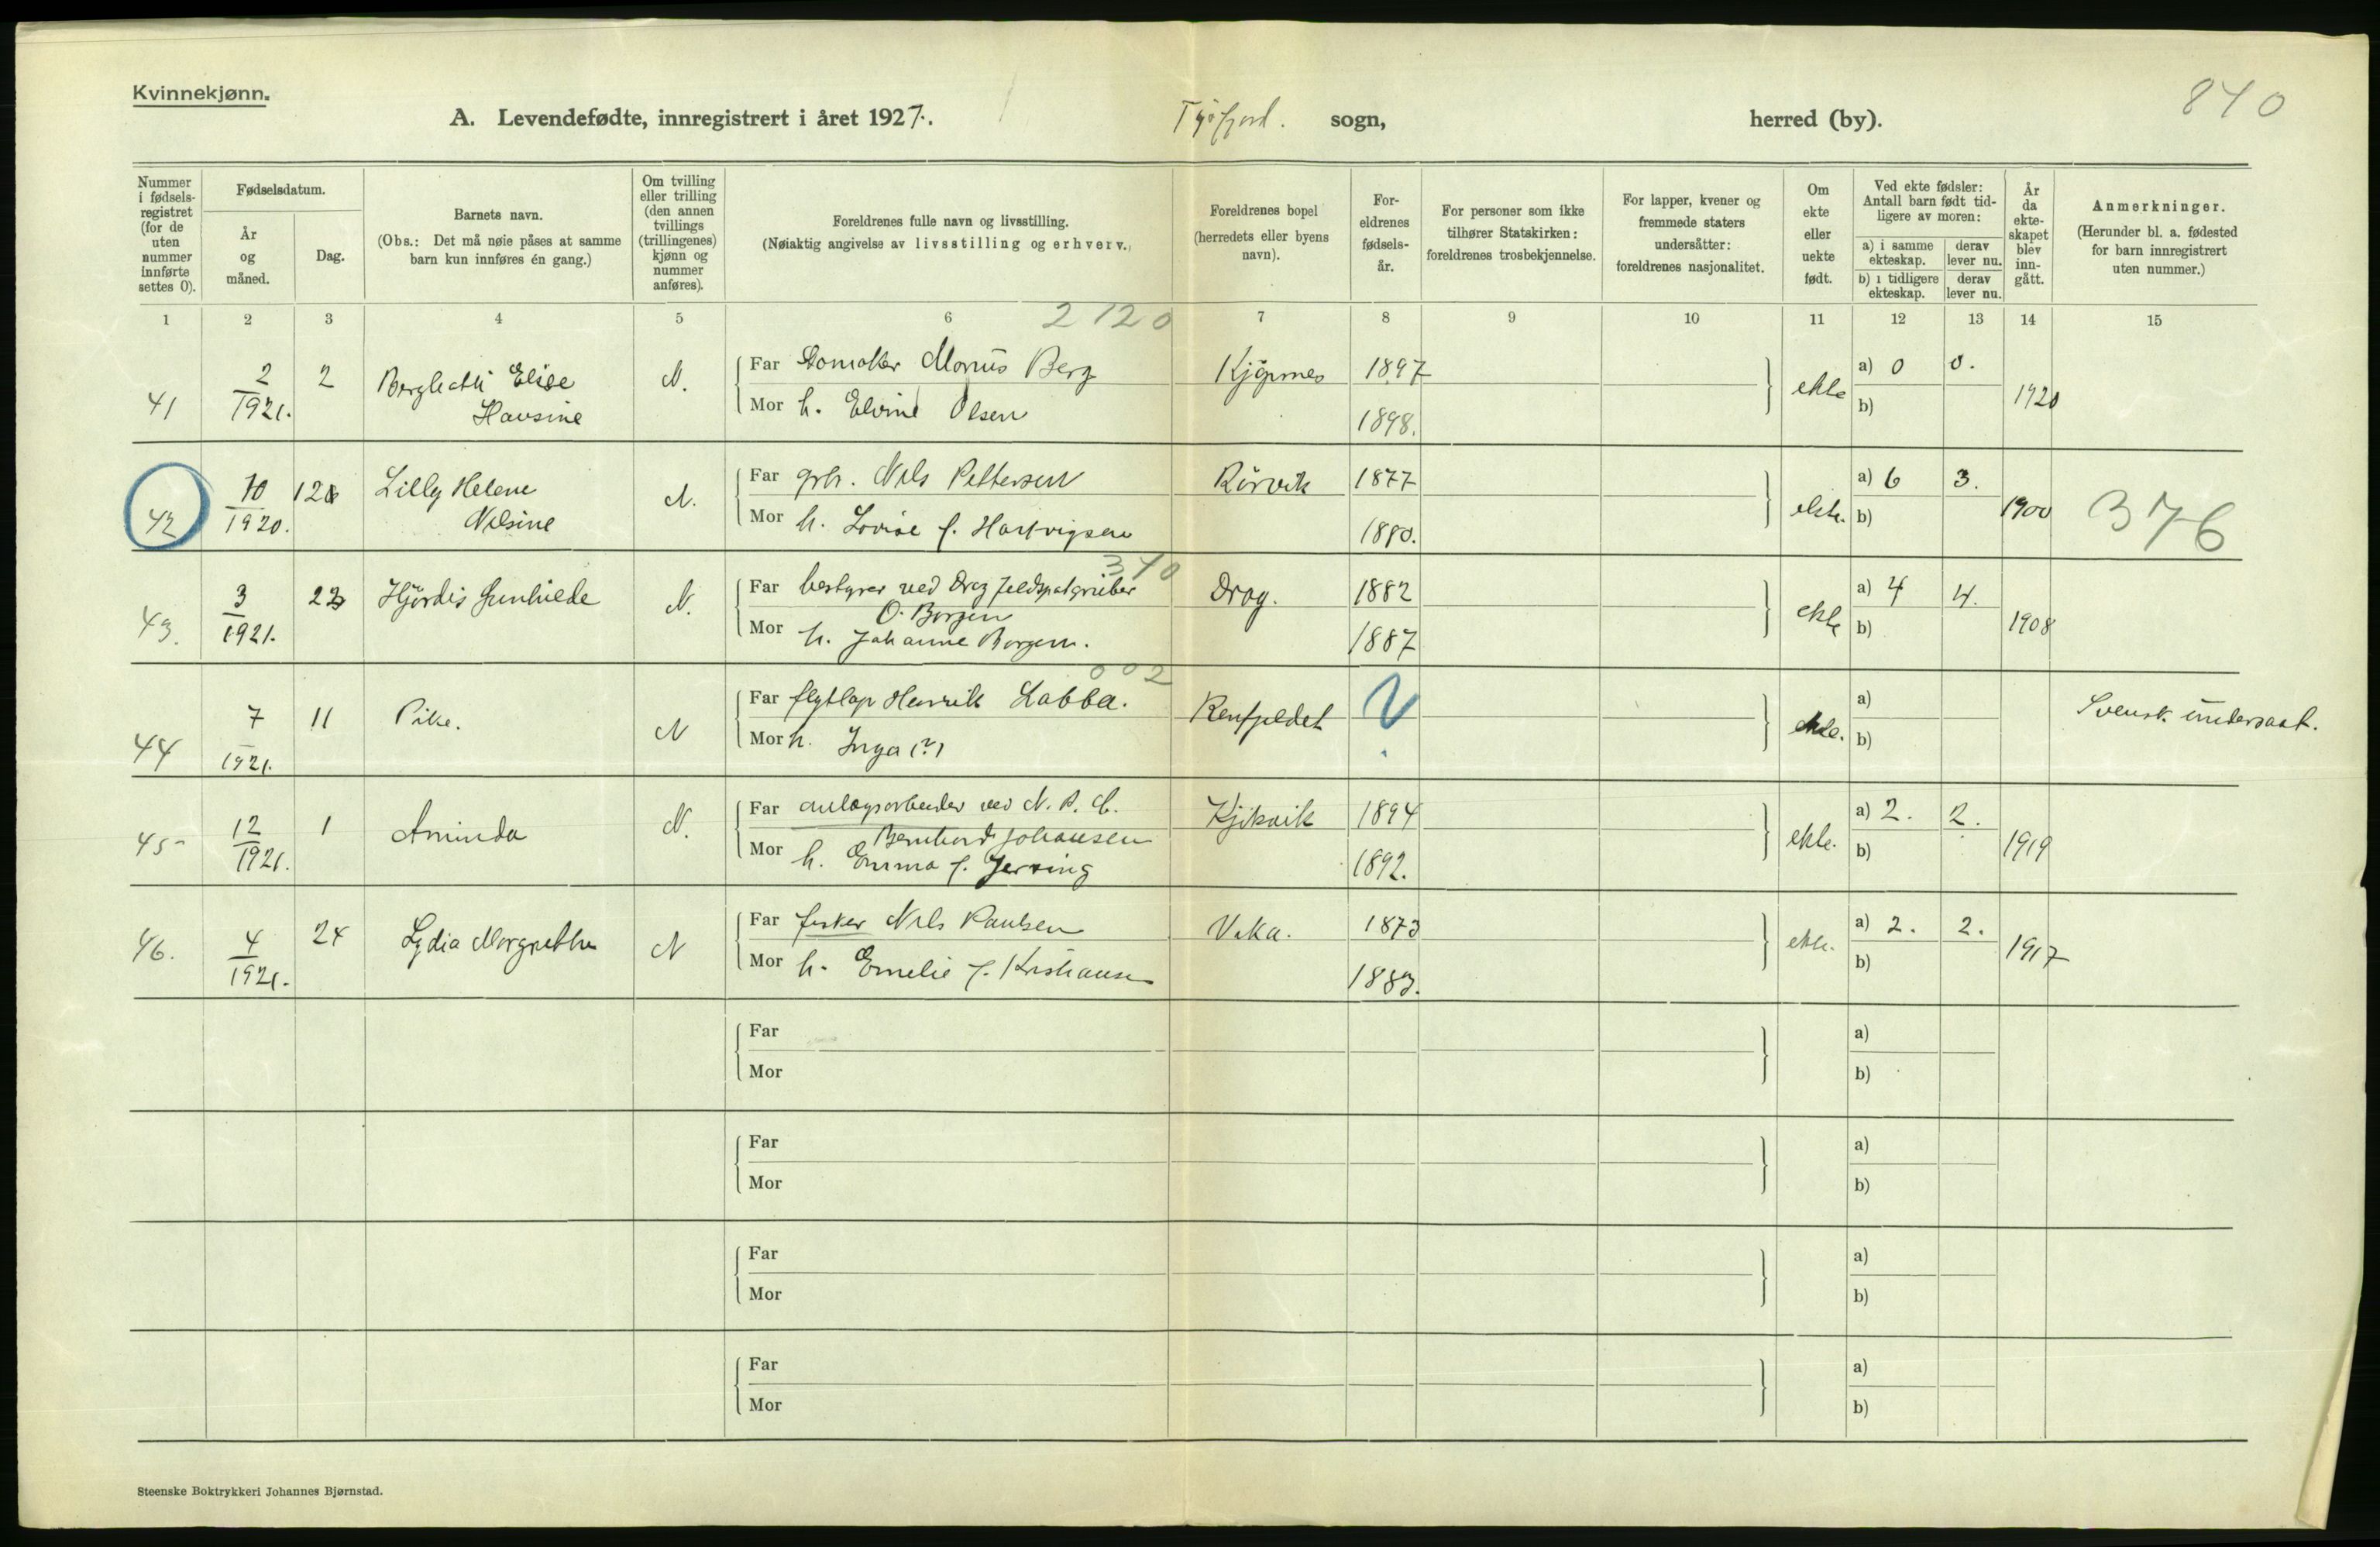 Kvinnekjønn.
840
A. Levendefødte, innregistrert i året 1927.
sogn,
herred (by).
Nummer i fødsels-registret (for de uten nummer innførte settes 0).
Fødselsdatum.
År og måned.
Dag.
Barnets navn.
(Obs.: Det må nøie påses at samme barn kun innføres én gang.)
Om tvilling eller trilling (den annen tvillings (trillingenes) kjønn og nummer anføres).
Foreldrenes fulle navn og livsstilling.
(Nøiaktig angivelse av livsstilling og erhverv.)
Foreldrenes bopel (herredets eller byens navn).
For-eldrenes fødsels-år.
For personer som ikke tilhører Statskirken: foreldrenes trosbekjennelse.
For lapper, kvener og fremmede staters undersåtter: foreldrenes nasjonalitet.
Om ekte eller uekte født.
Ved ekte fødsler: Antall barn født tid-ligere av moren:
a) i samme ekteskap.
derav lever nu.
b) i tidligere ekteskap.
derav lever nu.
År da ekte-skapet blev inn-gått.
Anmerkninger.
(Herunder bl. a. fødested for barn innregistrert uten nummer.)
1 2 3 4 5 6 2120 7 8 9 10 11 12 13 14 15
41 2/1921. 2 Elise N. Far Berg 1897 ekte a) 0 0. 1920
Hansine Mor h. Olsen 1898. b)
42 10/1920. Lilly Helene N. Far Nils Pettersen Rörvik 1877 ekte. a) 6 3. 1900 376
Nilsine Mor h. Lovise f. Hartvigsen 1880. b)
340
43. 3/1921. Hjördis Gunhilde N. Far bestyrer ved Drag feldspatgruber Drag. 1882 ekte a) 4 4. 1908
O. Borgen
Mor h. Johanne Borgen. 1887 b)
002
44 7/1921. 11 Pike. N Far flytlap Henrik Labba. ? ekte. a) Svensk undersaat.
Mor h. Inga (?) b)
45 12/1921. 1 Aminda N. Far anlægsarbeider ved Kjikvik 1894 ekte. a) 2. 2. 1919
Johansen
Mor h. Emma f. 1892. b)
46. 4/1921. 24 Lydia Margrethe N Far fisker Nils Paulsen 1873 ekte. a) 2. 2. 1917
Mor h. Emelie f. 1883. b)
Far a)
Mor b)
Far a)
Mor b)
Far a)
Mor b)
Far a)
Mor b)
Steenske Boktrykkeri Johannes Bjørnstad.